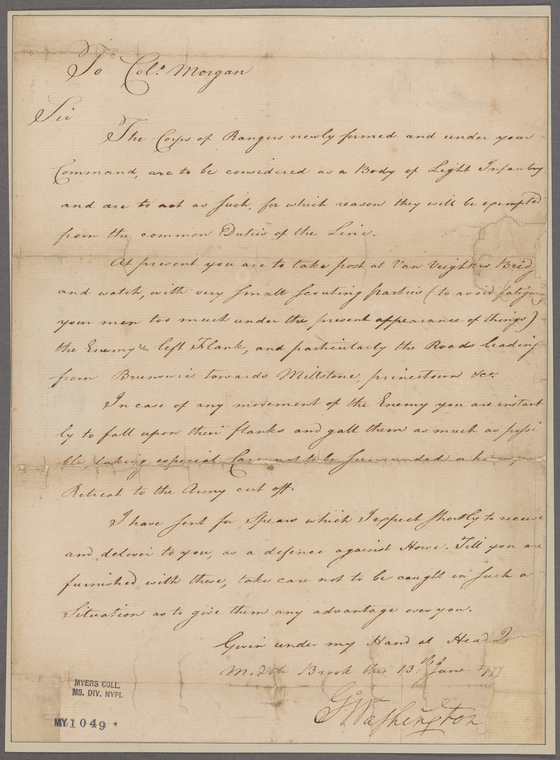 To Colo. Morgan
Sir
The Corps of Rangers newly formed and under your
Command, are to be considered as a Body of Light Infantry
and are to act as such, for which reason they will be exempted
from the common Duties of the Line.
At present you are to take post at Van Veighten's Brid
and watch, with very small scouting parties (to avoid fatiguing
your men too much under the present appearance of things)
the Enemy's left Flank, and particularly the Roads leading
from Brunswic towards Millstone, princetown &ca.
In case of any movement of the Enemy you are instant
ly to fall upon their flanks and gall them as much as possi
ble, taking especial Care not to be surrounded or have your
Retreat to the Army cut off.
I have sent for Spears which I expect shortly to receive
and deliver to you, as a defence against Horse. Till you are
furnished with these, take care not to be caught in such a
Situation as to give them any advantage over you.
Given under my Hand at Head Q
Middle Brook the 13th. June 1777
Go: Washington
MYERS COLL.
MS. DIV. NYPL
MY 1049